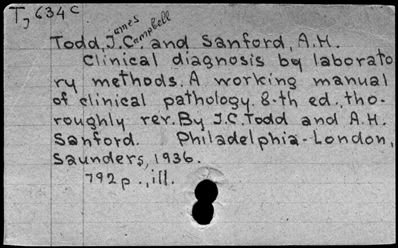 T, 634c
ames Campbell
Todd, J. C. and Sanford, A.H.
Clinical diagnosis by laborato
ry methods. A working manual
of clinical pathology. 8-th ed., tho-
roughly rev. By J.C. Todd and A.H.
Sanford. Philadelphia-London,
Saunders, 1936.
792p., ill.